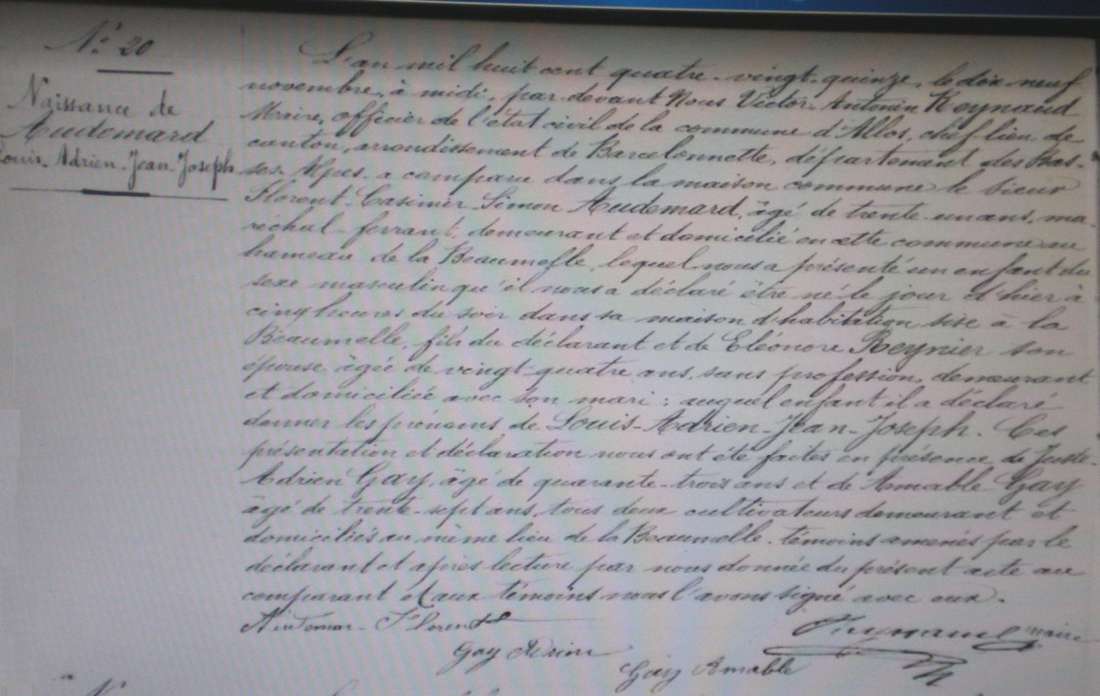 N° 20
Naissance de
Audemard
Louis-Adrien-Jean-Joseph
L'an mil huit cent quatre-vingt-quinze, le dix-neuf
novembre, à midi, par devant Nous Victor Antonin Reynaud
Maire, officier de l'état civil de la commune d'Allos, chef-lieu de
canton, arrondissement de Barcelonnette, département des Bas-
ses-Alpes a comparu dans la maison commune le sieur
Florent-Casimir-Simon Audemard, âgé de trente-un ans, ma-
réchal-ferrant, demeurant et domicilié en cette commune au
hameau de la Beaumelle, lequel nous a présenté un enfant du
sexe masculin qu'il nous a déclaré être né le jour d'hier à
cinq heures du soir dans sa maison d'habitation sise à la
Beaumelle, fils du déclarant et de Eléonore Reynier son
épouse âgée de vingt-quatre ans, sans profession, demeurant
et domiciliée avec son mari : auquel enfant il a déclaré
donner les prénoms de Louis-Adrien-Jean-Joseph. Ces
présentation et déclaration nous ont été faites en présence de Juste-
Adrien Gay, âgé de quarante-trois ans et de Amable Gay
âgé de trente-sept ans, tous deux cultivateurs demeurant et
domiciliés au même lieu de la Beaumelle. témoins amenés par le
déclarant et après lecture par nous donnée du présent acte au
comparant et aux témoins nous l'avons signé avec eux.
Florent
Gay Adrien
Gay Amable
Reynaud maire